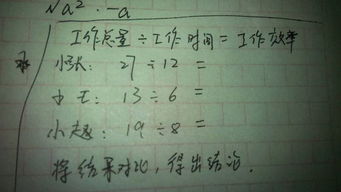 √a² · -a
工作总量÷工作时间=工作效率
小张: 27÷12=
小王: 13÷6=
小赵: 19÷8=
将结果对比,得出结论.